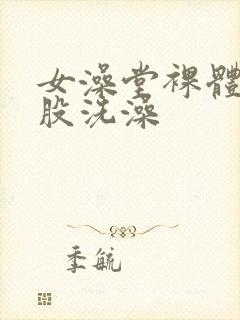 女澡堂裸體
股洗澡
季毓